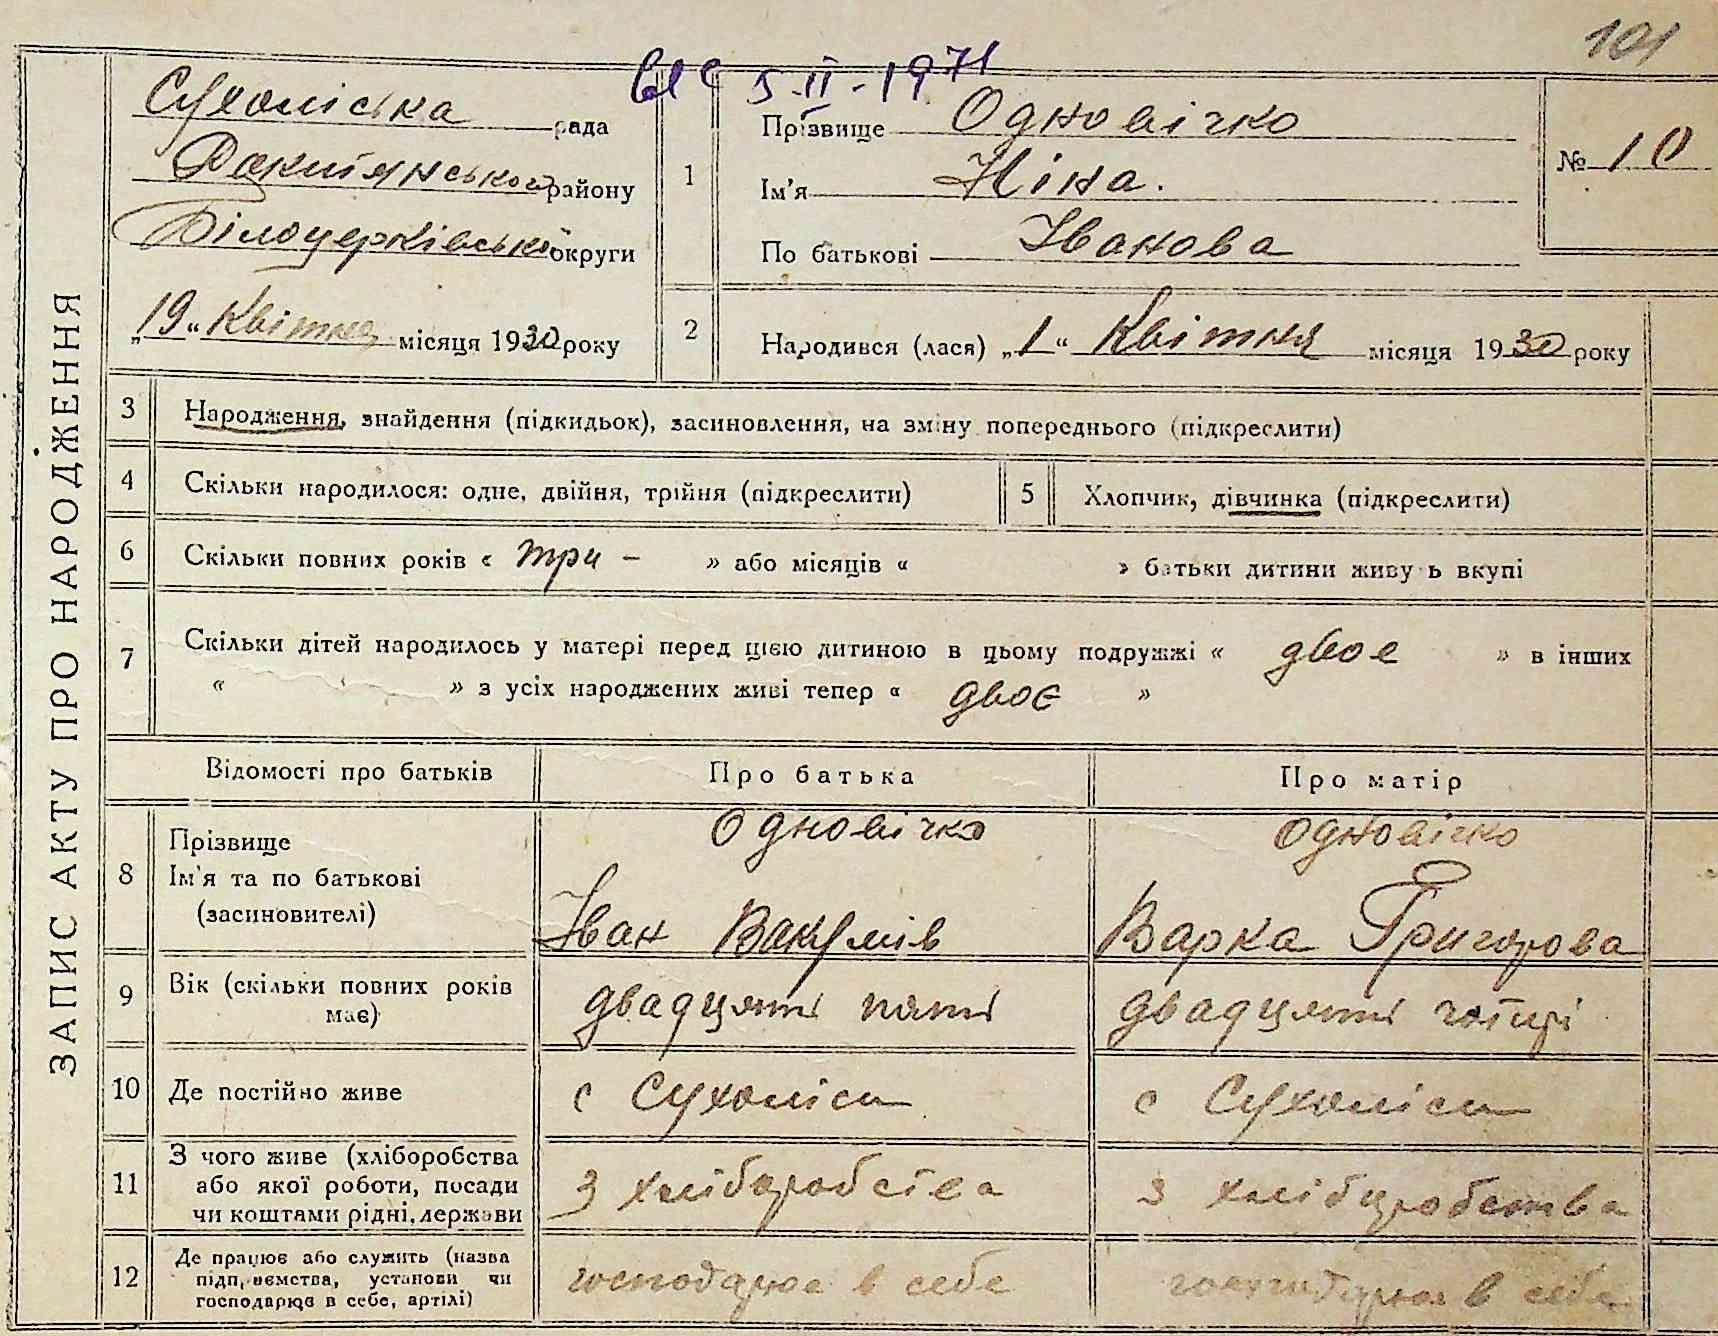 101
5-II-1971
ЗАПИС АКТУ ПРО НАРОДЖЕННЯ
Сухоліська рада
Ракитянського району
Білоцерківської округи
„19“ Квітня місяця 1930 року
1
Прізвище Одновічко
Ім'я Ніна.
По батькові Іванова
№ 10
2
Народився (лася) „1“ Квітня місяця 1930 року
3 Народження, знайдення (підкидьок), засиновлення, на зміну попереднього (підкреслити)
4 Скільки народилося: одне, двійня, трійня (підкреслити)
5 Хлопчик, дівчинка (підкреслити)
6 Скільки повних років « три – » або місяців « » батьки дитини живуть вкупі
7 Скільки дітей народилось у матері перед цією дитиною в цьому подружжі « двоє » в інших
« » з усіх народжених живі тепер « двоє »
Відомості про батьків Про батька Про матір
8 Прізвище
Ім'я та по батькові
(засиновителі)
Одновічко
Іван Вакулів
Одновічко
Варка Григорова
9 Вік (скільки повних років
має)
двадцять пять
двадцять чотирі
10 Де постійно живе
с Сухоліси
с Сухоліси
11 З чого живе (хліборобства
або якої роботи, посади
чи коштами рідні, держави
З хліборобства
з хліборобства
12 Де працює або служить (назва
підприємства, установи чи
господарює в себе, артілі)
господарює в себе
господарює в себе